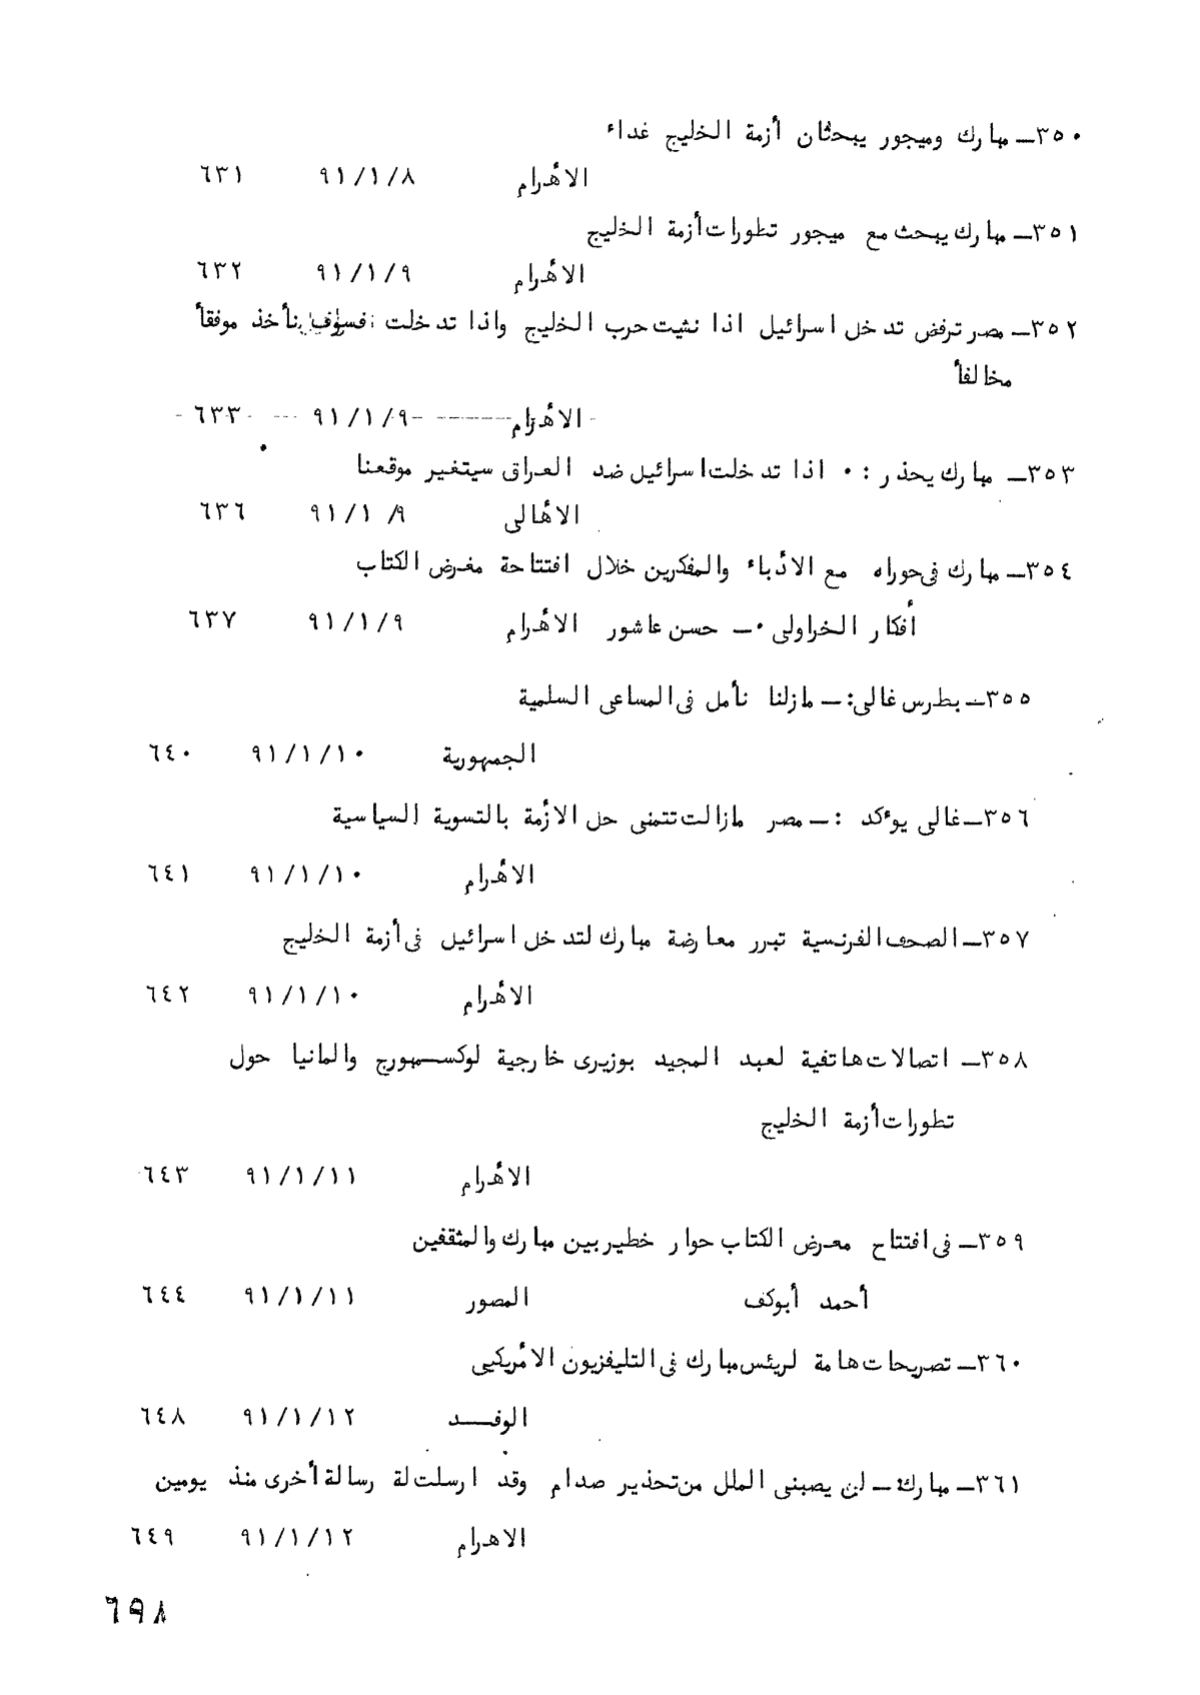 ٣٥٠ــ مبارك وميجور يبحثان أزمة الخليج غداء
الأهرام ٩١/١/٨ ٦٣١
٣٥١ــ مبارك يبحث مع ميجور تطورات أزمة الخليج
الأهرام ٩١/١/٩ ٦٣٢
٣٥٢ــ مصر ترفض تدخل اسرائيل اذا نشبت حرب الخليج واذا تدخلت فسوف نأخذ موفقاً
مخالفاً
الأهرام ٩١/١/٩ ٦٣٣
٣٥٣ــ مبارك يحذر : ٠ اذا تدخلت اسرائيل ضد العراق سيتغير موقعنا
الأهالى ٩١/١/٩ ٦٣٦
٣٥٤ــ مبارك فى حوراه مع الأدباء والمفكرين خلال افتتاحة مغرض الكتاب
أفكار الخراولى ٠ــ حسن عاشور الأهرام ٩١/١/٩ ٦٣٧
٣٥٥ــ بطرس غالى: ــ مازلنا نأمل فى المساعى السلمية
الجمهورية ٩١/١/١٠ ٦٤٠
٣٥٦ــ غالى يوءكد : ــ مصر مازالت تتمنى حل الأزمة بالتسوية السياسية
الأهرام ٩١/١/١٠ ٦٤١
٣٥٧ــ الصحف الفرنسية تبرر معارضة مبارك لتدخل اسرائيل فى أزمة الخليج
الأهرام ٩١/١/١٠ ٦٤٢
٣٥٨ــ اتصالات هاتفية لعبد المجيد بوزيرى خارجية لوكسمبورج والمانيا حول
تطورات أزمة الخليج
الأهرام ٩١/١/١١ ٦٤٣
٣٥٩ــ فى افتتاح معرض الكتاب حوار خطير بين مبارك والمثقفين
أحمد أبوكف المصور ٩١/١/١١ ٦٤٤
٣٦٠ــ تصريحات هامة لرئس مبارك فى التليفزيون الأمريكيى
الوفــد ٩١/١/١٢ ٦٤٨
٣٦١ــ مبارك ــ لن يصبنى الملل من تحذير صدام وقد ارسلت لة رسالة أخرى منذ يومين
الاهرام ٩١/١/١٢ ٦٤٩
٦٩٨